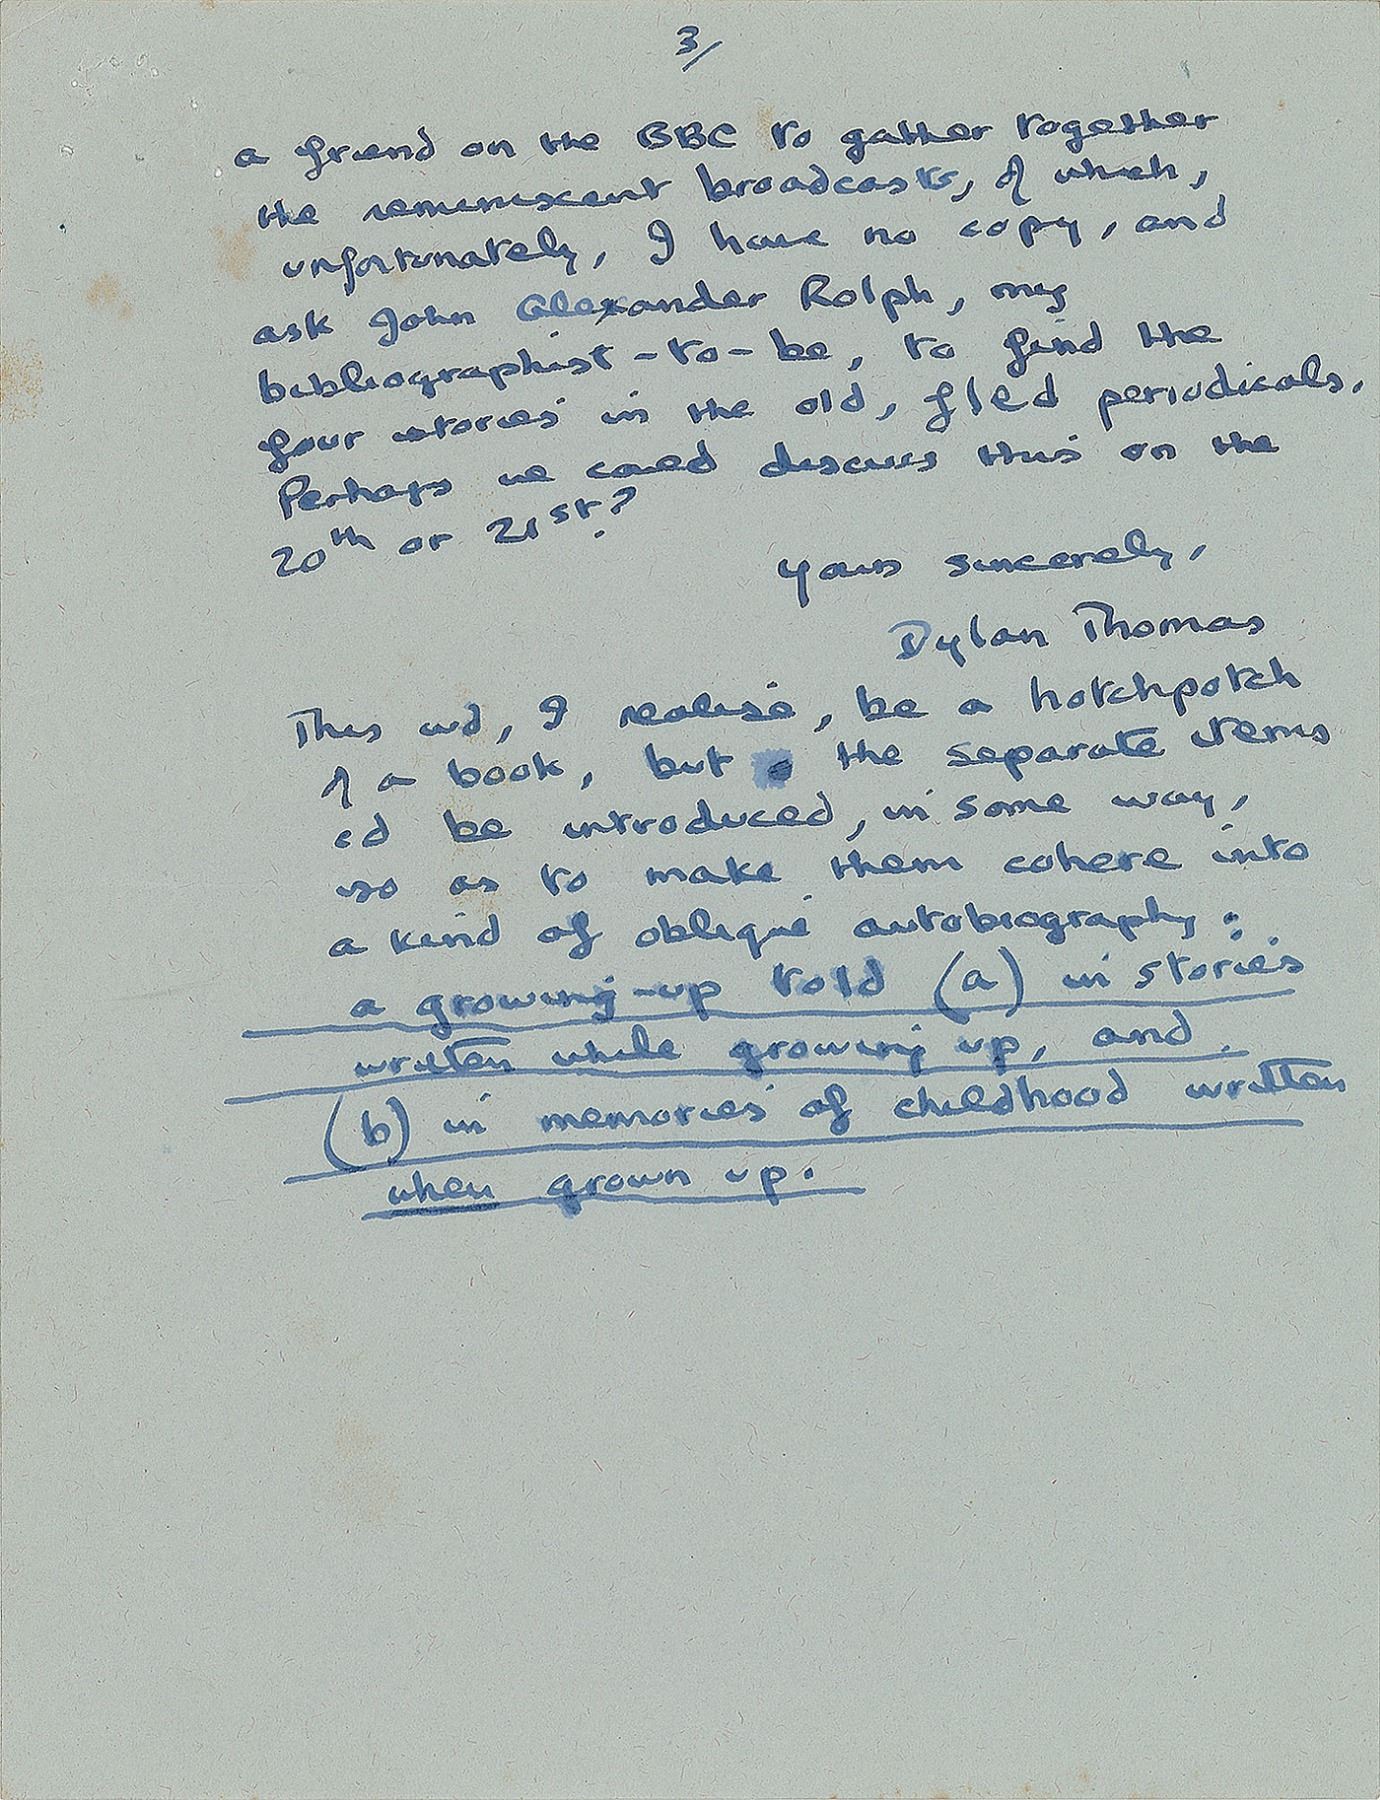 3/
a friend on the BBC to gather together
the reminiscent broadcasts, of which,
unfortunately, I have no copy, and
ask John Alexander Rolph, my
bibliographist-to-be, to find the
four stories in the old, fled periodicals.
Perhaps we could discuss this on the
20th or 21st?
Yours sincerely,
Dylan Thomas
This wd, I realise, be a hotchpotch
of a book, but the separate items
cd be introduced, in some way,
so as to make them cohere into
a kind of oblique autobiography:
a growing-up told (a) in stories
written while growing up, and
(b) in memories of childhood written
when grown up.